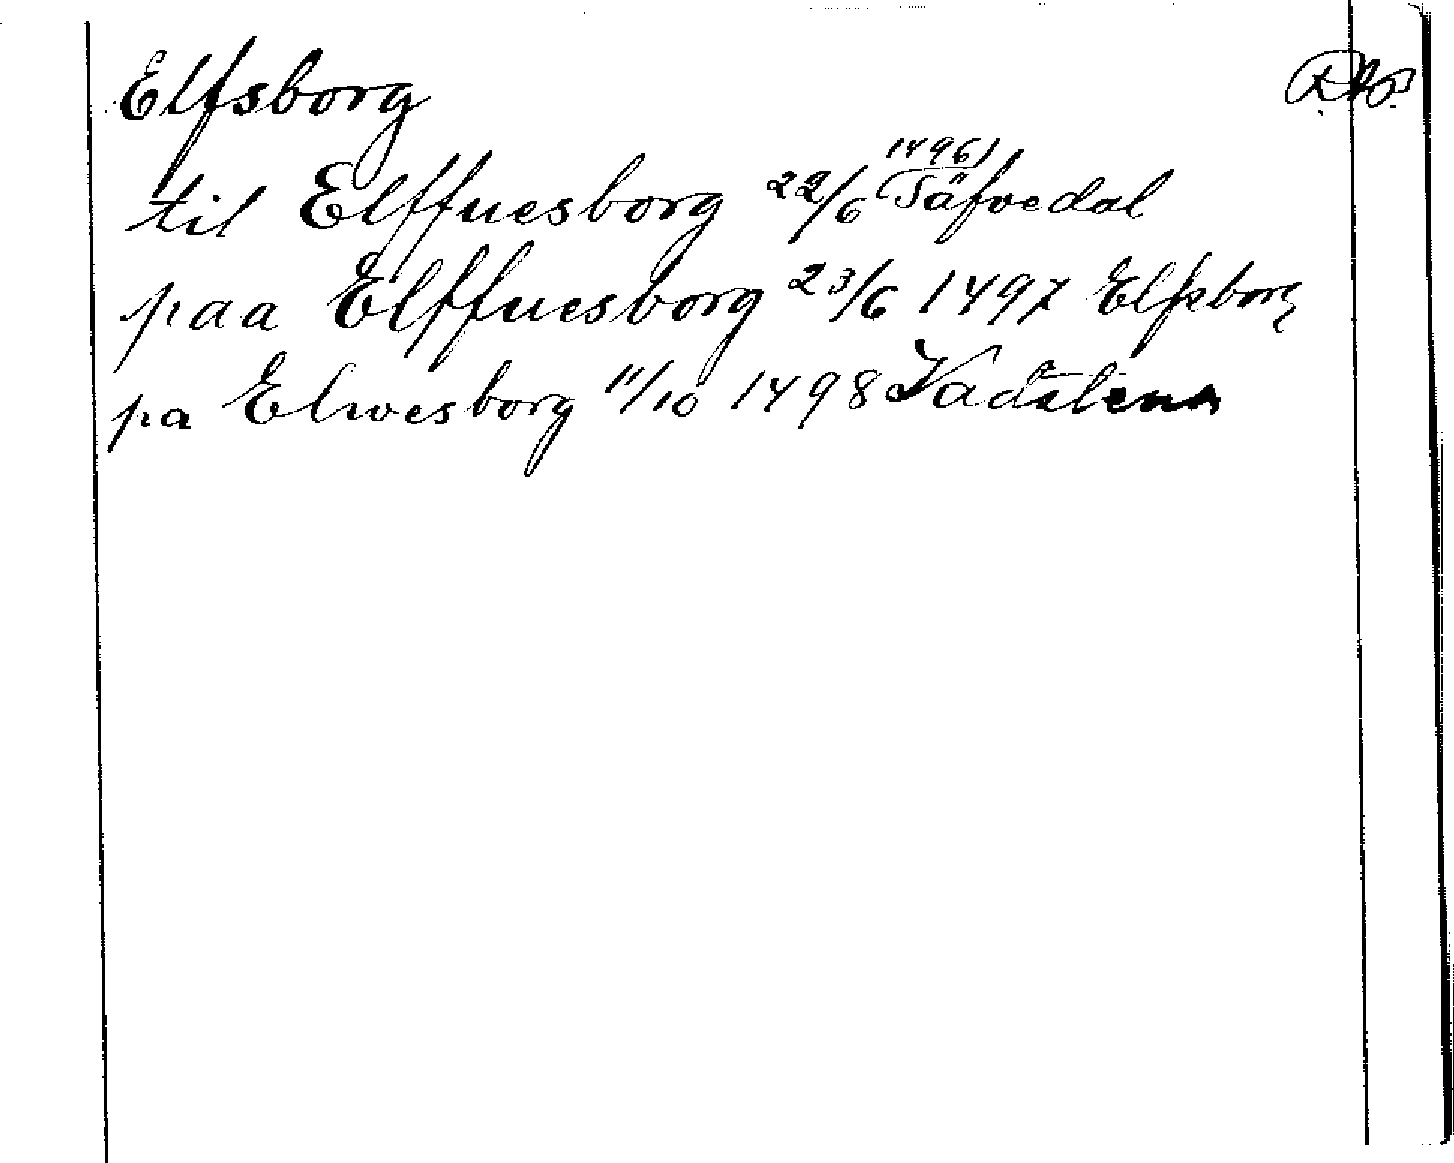 Elfsborg R.Ap.
til Elffuesborg 22/6 1496 Säfvedal
paa Elffuesborg 23/6 1497 Elfsborg
pa Elwesborg 11/10 1498 Vadstena